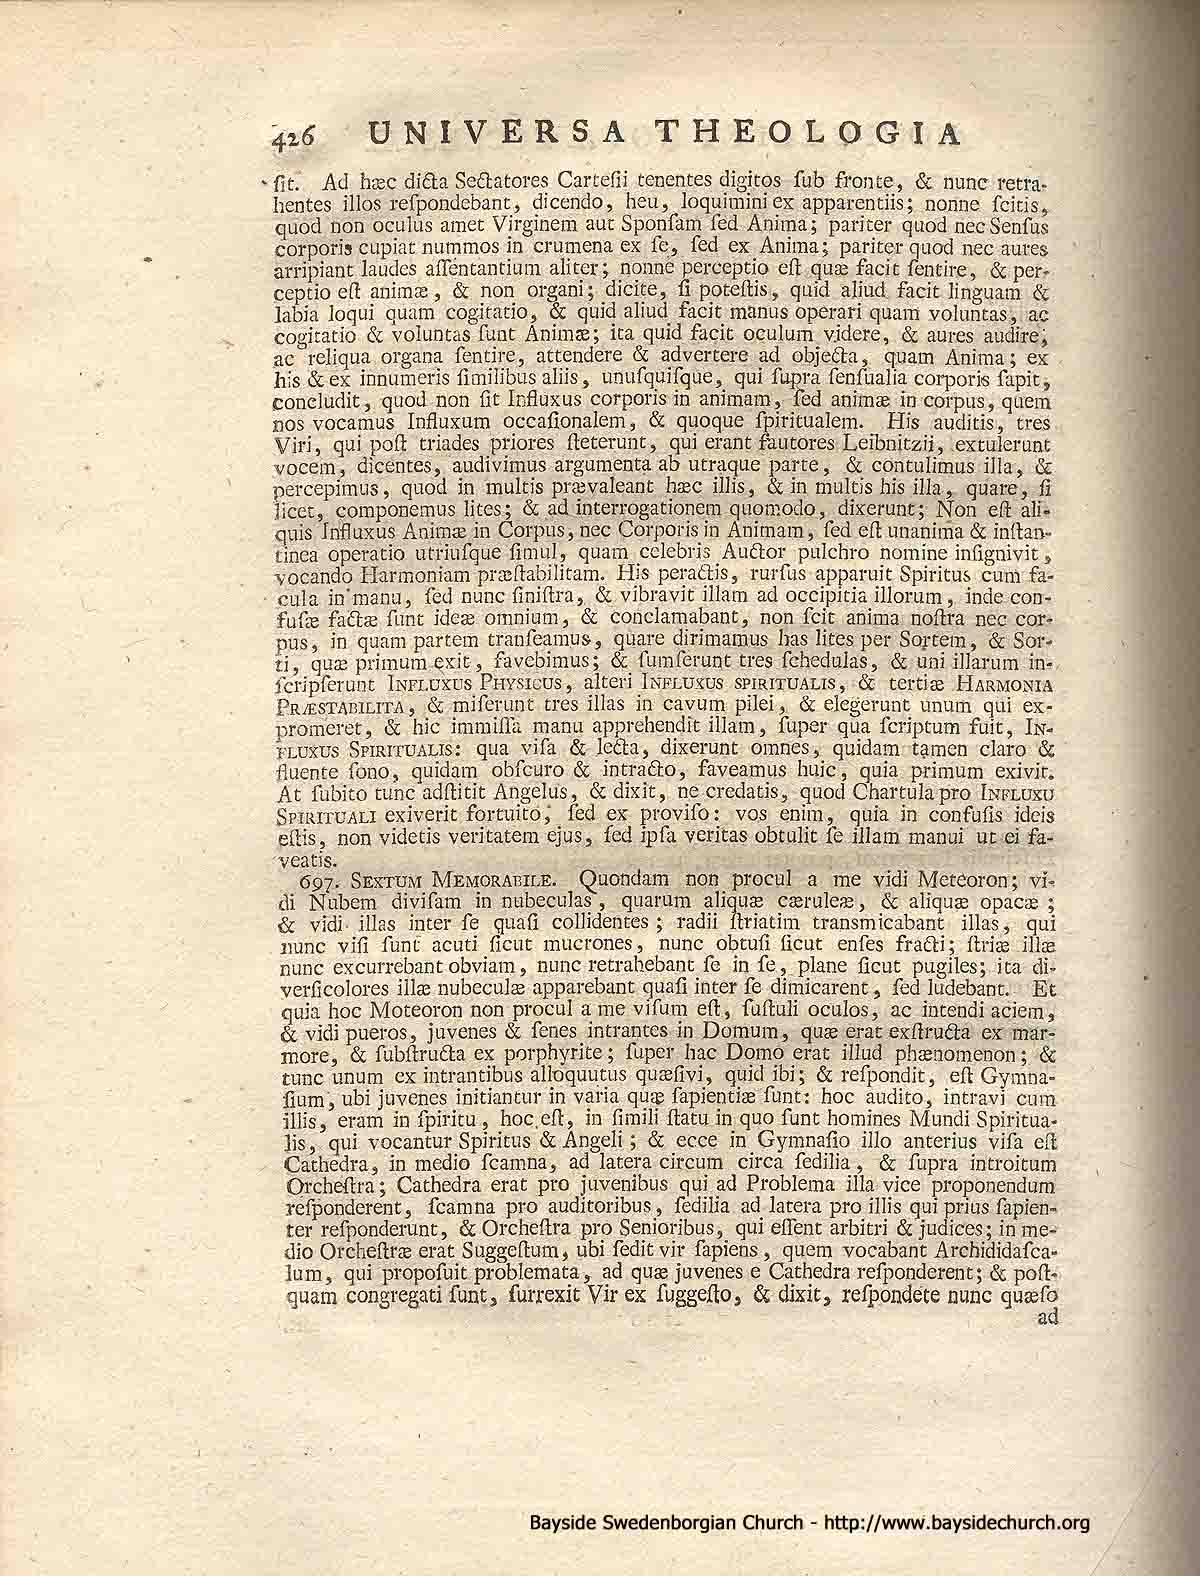 426 UNIVERSA THEOLOGIA
ſit. Ad hæc dicta Sectatores Carteſii tenentes digitos ſub fronte, & nunc retra-
hentes illos reſpondebant, dicendo, heu, loquimini ex apparentiis; nonne ſcitis,
quod non oculus amet Virginem aut Sponſam ſed Anima; pariter quod nec Senſus
corporis cupiat nummos in crumena ex ſe, ſed ex Anima; pariter quod nec aures
arripiant laudes aſſentantium aliter; nonne perceptio eſt quæ facit ſentire, & per-
ceptio eſt animæ, & non organi; dicite, ſi poteſtis, quid aliud facit linguam &
labia loqui quam cogitatio, & quid aliud facit manus operari quam voluntas, ac
cogitatio & voluntas ſunt Animæ; ita quid facit oculum videre, & aures audire,
ac reliqua organa ſentire, attendere & advertere ad objecta, quam Anima; ex
his & ex innumeris ſimilibus aliis, unuſquiſque, qui ſupra ſenſualia corporis ſapit,
concludit, quod non ſit Influxus corporis in animam, ſed animæ in corpus, quem
nos vocamus Influxum occaſionalem, & quoque ſpiritualem. His auditis, tres
Viri, qui poſt triades priores ſteterunt, qui erant fautores Leibnitzii, extulerunt
vocem, dicentes, audivimus argumenta ab utraque parte, & contulimus illa, &
percepimus, quod in multis prævaleant hæc illis, & in multis his illa, quare, ſi
licet, componemus lites; & ad interrogationem quomodo, dixerunt; Non eſt ali-
quis Influxus Animæ in Corpus, nec Corporis in Animam, ſed eſt unanima & inſtan-
tinea operatio utriuſque ſimul, quam celebris Auctor pulchro nomine inſignivit,
vocando Harmoniam præſtabilitam. His peractis, rurſus apparuit Spiritus cum fa-
cula in manu, ſed nunc ſiniſtra, & vibravit illam ad occipitia illorum, inde con-
fuſæ factæ ſunt ideæ omnium, & conclamabant, non ſcit anima noſtra nec cor-
pus, in quam partem tranſeamus, quare dirimamus has lites per Sortem, & Sor-
ti, quæ primum exit, favebimus; & ſumſerunt tres ſchedulas, & uni illarum in-
ſcripſerunt INFLUXUS PHYSICUS, alteri INFLUXUS SPIRITUALIS, & tertiæ HARMONIA
PRÆSTABILITA, & miſerunt tres illas in cavum pilei, & elegerunt unum qui ex-
promeret, & hic immiſſa manu apprehendit illam, ſuper qua ſcriptum fuit, IN-
FLUXUS SPIRITUALIS: qua viſa & lecta, dixerunt omnes, quidam tamen claro &
fluente ſono, quidam obſcuro & intracto, faveamus huic, quia primum exivit.
At ſubito tunc adſtitit Angelus, & dixit, ne credatis, quod Chartula pro INFLUXU
SPIRITUALI exiverit fortuito, ſed ex proviſo: vos enim, quia in confuſis ideis
eſtis, non videtis veritatem ejus, ſed ipſa veritas obtulit ſe illam manui ut ei fa-
veatis.
697. SEXTUM MEMORABILE. Quondam non procul a me vidi Meteoron; vi-
di Nubem diviſam in nubeculas, quarum aliquæ cæruleæ, & aliquæ opacæ;
& vidi illas inter ſe quaſi collidentes; radii ſtriatim transmicabant illas, qui
nunc viſi ſunt acuti ſicut mucrones, nunc obtuſi ſicut enſes fracti; ſtriæ illæ
nunc excurrebant obviam, nunc retrahebant ſe in ſe, plane ſicut pugiles; ita di-
verſicolores illæ nubeculæ apparebant quaſi inter ſe dimicarent, ſed ludebant. Et
quia hoc Moteoron non procul a me viſum eſt, ſuſtuli oculos, ac intendi aciem,
& vidi pueros, juvenes & ſenes intrantes in Domum, quæ erat exſtructa ex mar-
more, & ſubſtructa ex porphyrite; ſuper hac Domo erat illud phænomenon; &
tunc unum ex intrantibus alloquutus quæſivi, quid ibi; & reſpondit, eſt Gymna-
ſium, ubi juvenes initiantur in varia quæ ſapientiæ ſunt: hoc audito, intravi cum
illis, eram in ſpiritu, hoc eſt, in ſimili ſtatu in quo ſunt homines Mundi Spiritua-
lis, qui vocantur Spiritus & Angeli; & ecce in Gymnaſio illo anterius viſa eſt
Cathedra, in medio ſcamna, ad latera circum circa ſedilia, & ſupra introitum
Orcheſtra; Cathedra erat pro juvenibus qui ad Problema illa vice proponendum
reſponderent, ſcamna pro auditoribus, ſedilia ad latera pro illis qui prius ſapien-
ter reſponderunt, & Orcheſtra pro Senioribus, qui eſſent arbitri & judices; in me-
dio Orcheſtræ erat Suggeſtum, ubi ſedit vir ſapiens, quem vocabant Archididaſca-
lum, qui propoſuit problemata, ad quæ juvenes e Cathedra reſponderent; & poſt-
quam congregati ſunt, ſurrexit Vir ex ſuggeſto, & dixit, reſpondete nunc quæſo
ad
Bayside Swedenborgian Church - http://www.baysidechurch.org